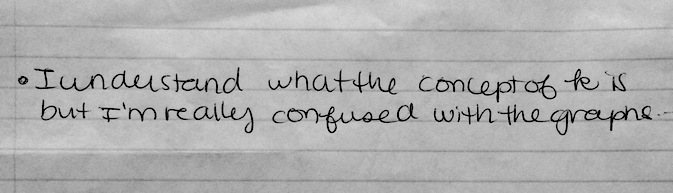 • I understand what the concept of k is
but I'm really confused with the graphs.